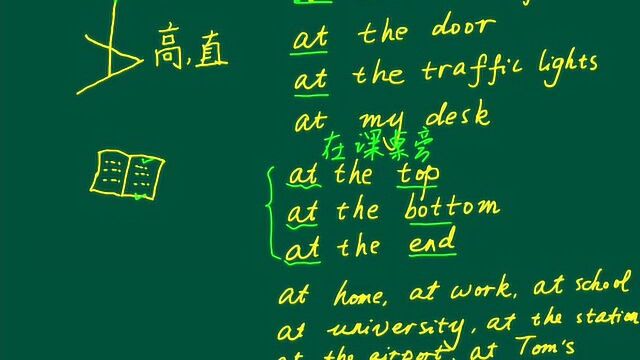 at the door
高,直
at the traffic lights
at my desk
在课桌旁
at the top
at the bottom
at the end
at home, at work, at school
at university, at the station
at the airport, at Tom's